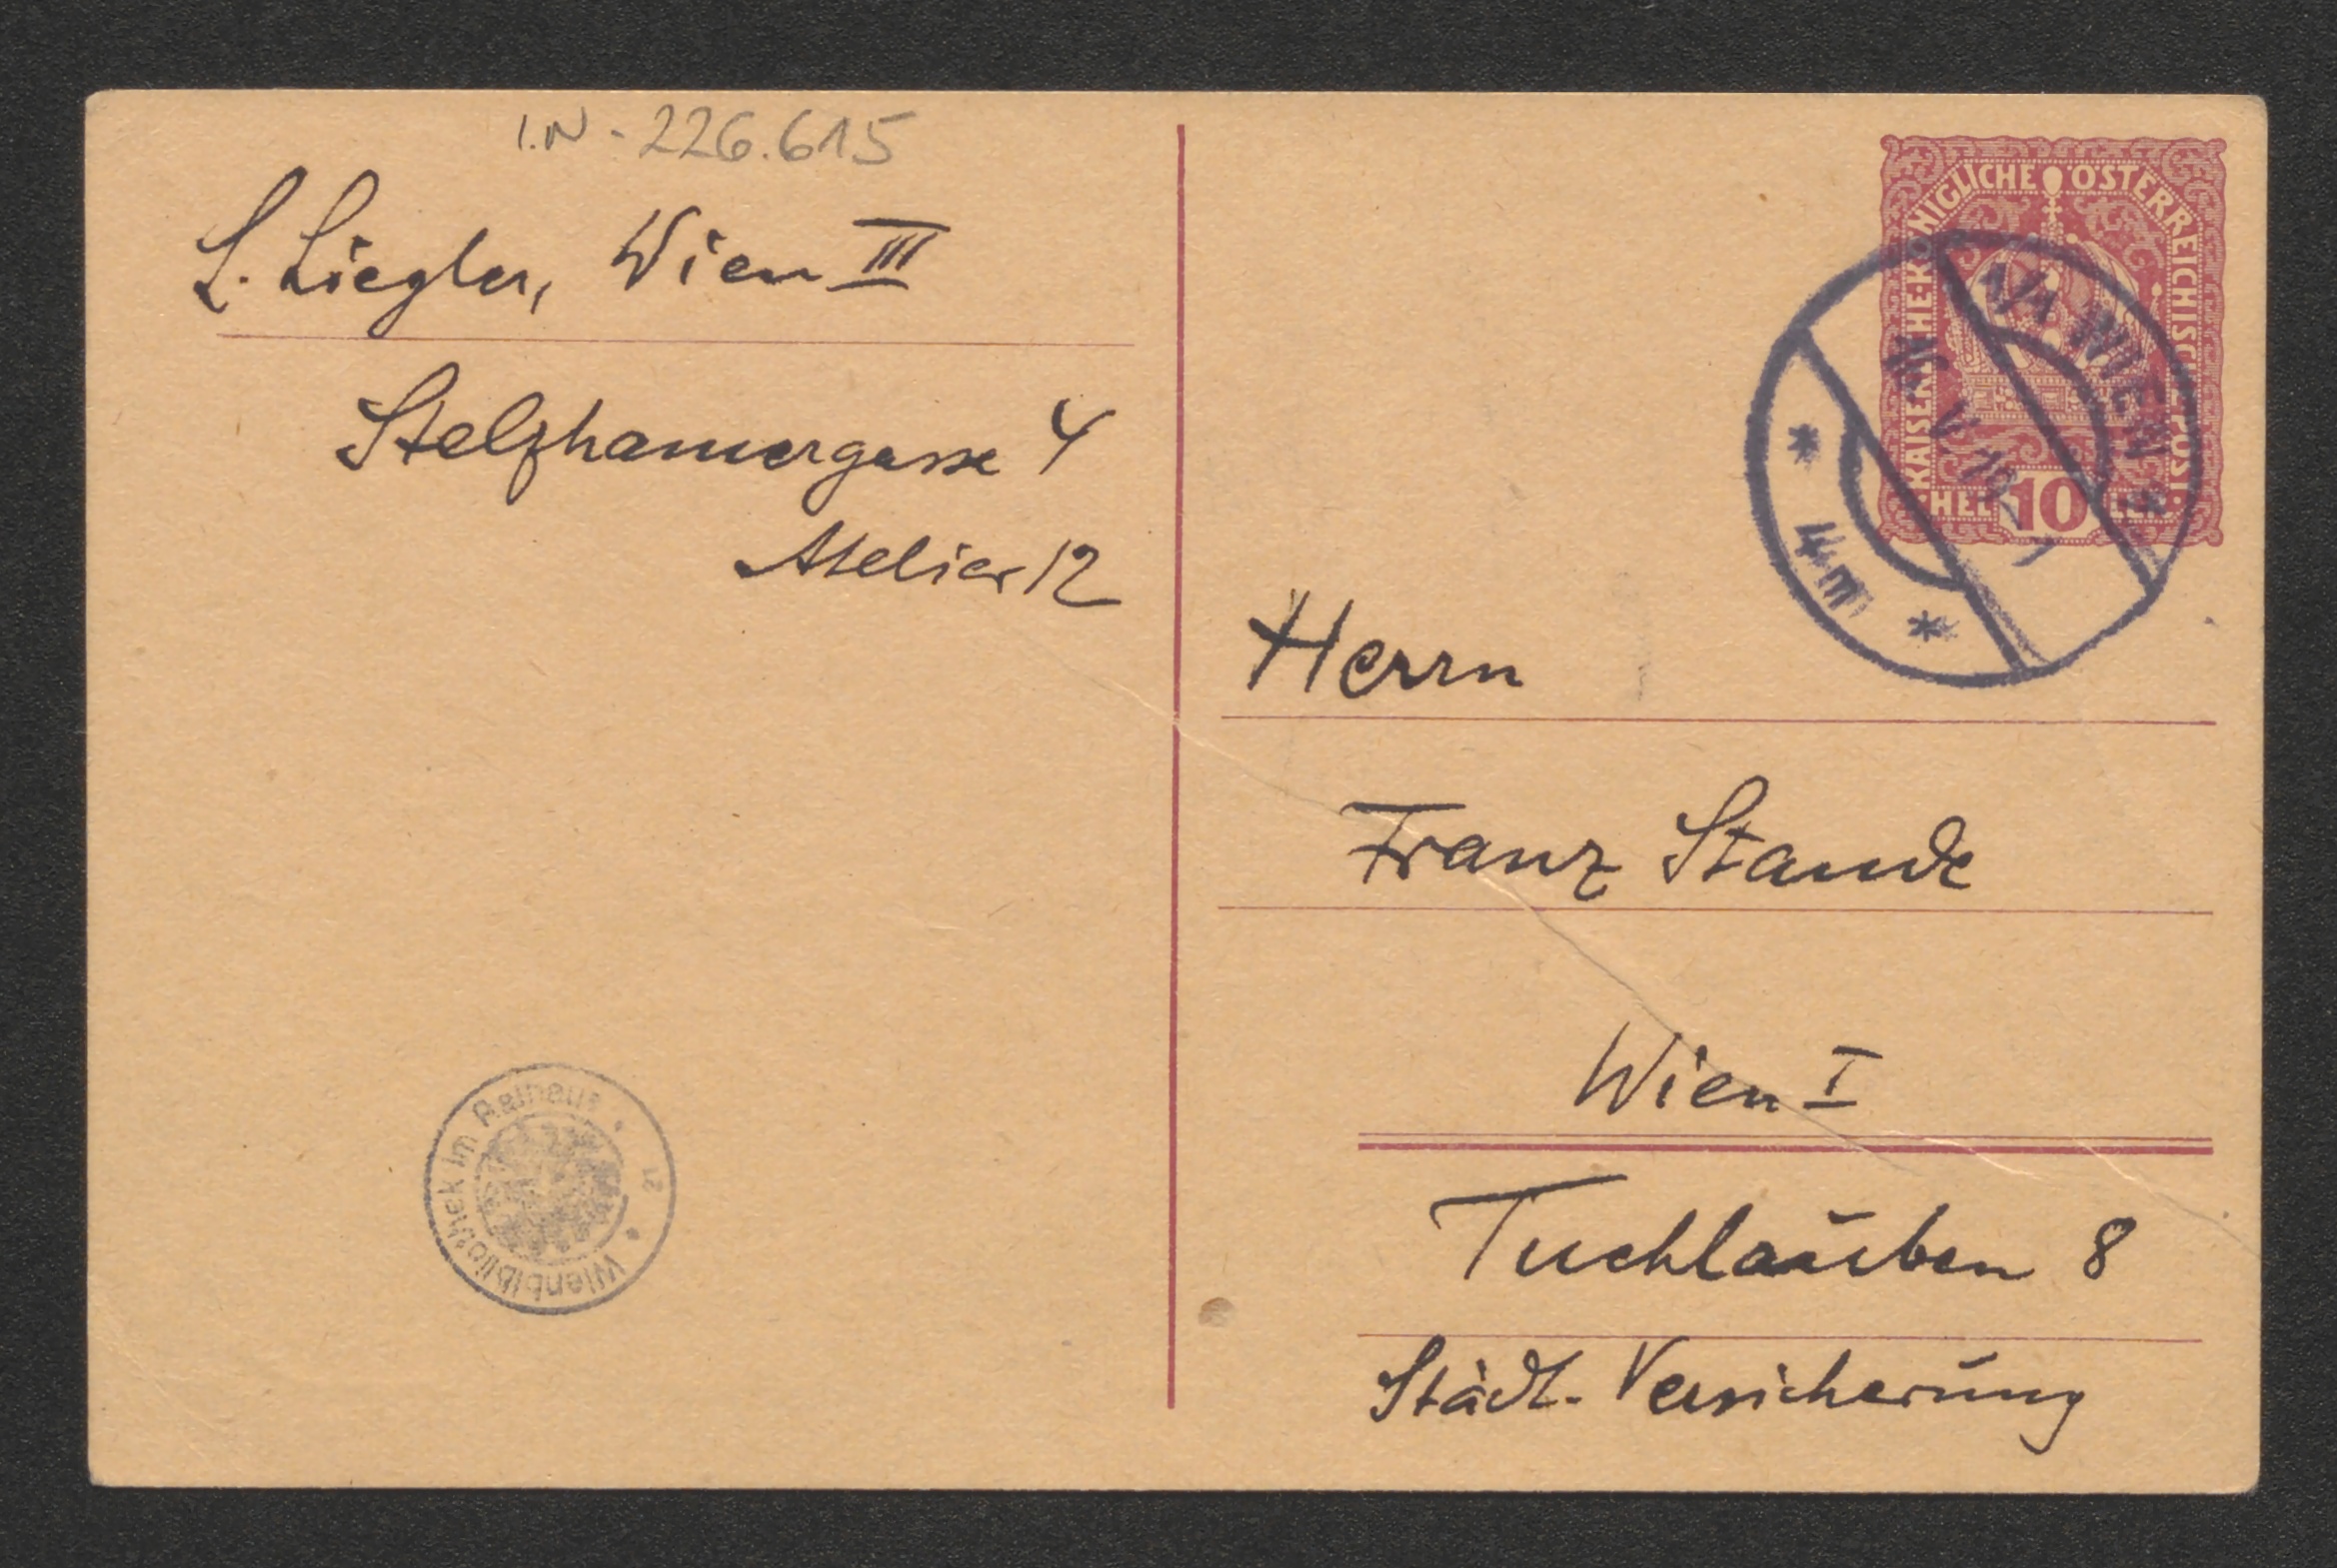 I.N-226.615
L. Liegler, Wien III
Stelzhamergasse 4
Atelier 12
KAISERLICHE KÖNIGLICHE ÖSTERREICHISCHE POST
HELLER 10
1/1 WIEN
V
Herrn
Franz Staude
Wien I
Tuchlauben 8
Städt. Versicherung
Wienbibliothek im Rathaus